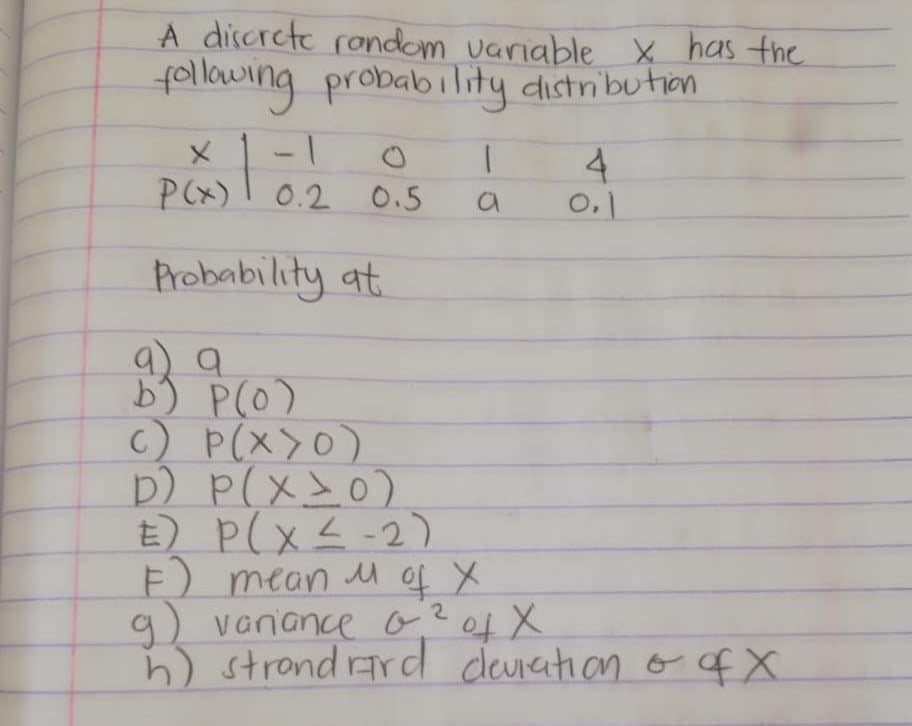 A discrete random variable X has the
following probability distribution
X | -1 0 1 4
P(X) | 0.2 0.5 a 0.1
Probability at
a) a
b) P(0)
C) P(X>0)
D) P(X≥0)
E) P(X≤-2)
F) mean μ of X
g) variance σ² of X
h) deviation σ of X